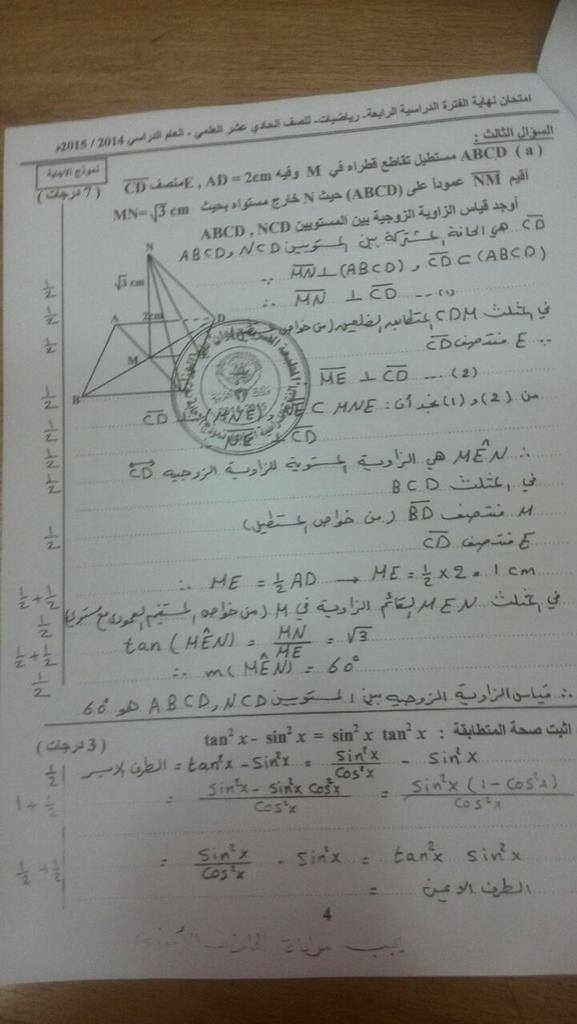 امتحان نهاية الفترة الدراسية الرابعة - رياضيات - للصف الحادي عشر العلمي - العام الدراسي 2014 / 2015م
نموذج الاجابة
السؤال الثالث :
( a ) ABCD مستطيل تقاطع قطراه في M وفيه AD = 2cm , E منتصف CD ( 7 درجات )
أقيم NM عموداً على (ABCD) حيث N خارج مستواه بحيث MN= √3 cm
أوجد قياس الزاوية الزوجية بين المستويين ABCD , NCD
CD هي الحافة المشتركة بين المستويين ABCD و NCD
∵ MN ⊥ (ABCD) , CD ⊂ (ABCD)
∴ MN ⊥ CD ---- (1)
في المثلث CDM المتطابق الضلعين (من خواص
∵ E منتصف CD
ME ⊥ CD --- (2)
من (1) و (2) نجد أن : CD ⊥ (MNE) , NE ⊂ MNE
NE ⊥ CD
∴ MÊN هي الزاوية المستوية للزاوية الزوجية CD
في المثلث BCD
M منتصف BD (من خواص المستطيل)
E منتصف CD
∴ ME = ½ AD → ME = ½ × 2 = 1 cm
في المثلث MEN القائم الزاوية في M (من خواص المستقيم العمودي مع مستوي)
tan (MÊN) = MN/ME = √3
∴ m(MÊN) = 60°
∴ قياس الزاوية الزوجية بين المستويين ABCD و NCD هو 60°
N
√3 cm
A 2cm D
M
B
½
½
½
½
½
½
½
½
½ + ½
½
½ + ½
½
اثبت صحة المتطابقة : tan² x - sin² x = sin² x tan² x ( 3 درجات )
الطرف الايسر = tan²x - Sin²x = Sin²x/Cos²x - Sin²x
= Sin²x - Sin²x Cos²x / Cos²x = Sin²x (1 - Cos²x) / Cos²x
= Sin²x/Cos²x · Sin²x = tan²x Sin²x
= الطرف الايمن
½
1 + ½
½ + ½
4